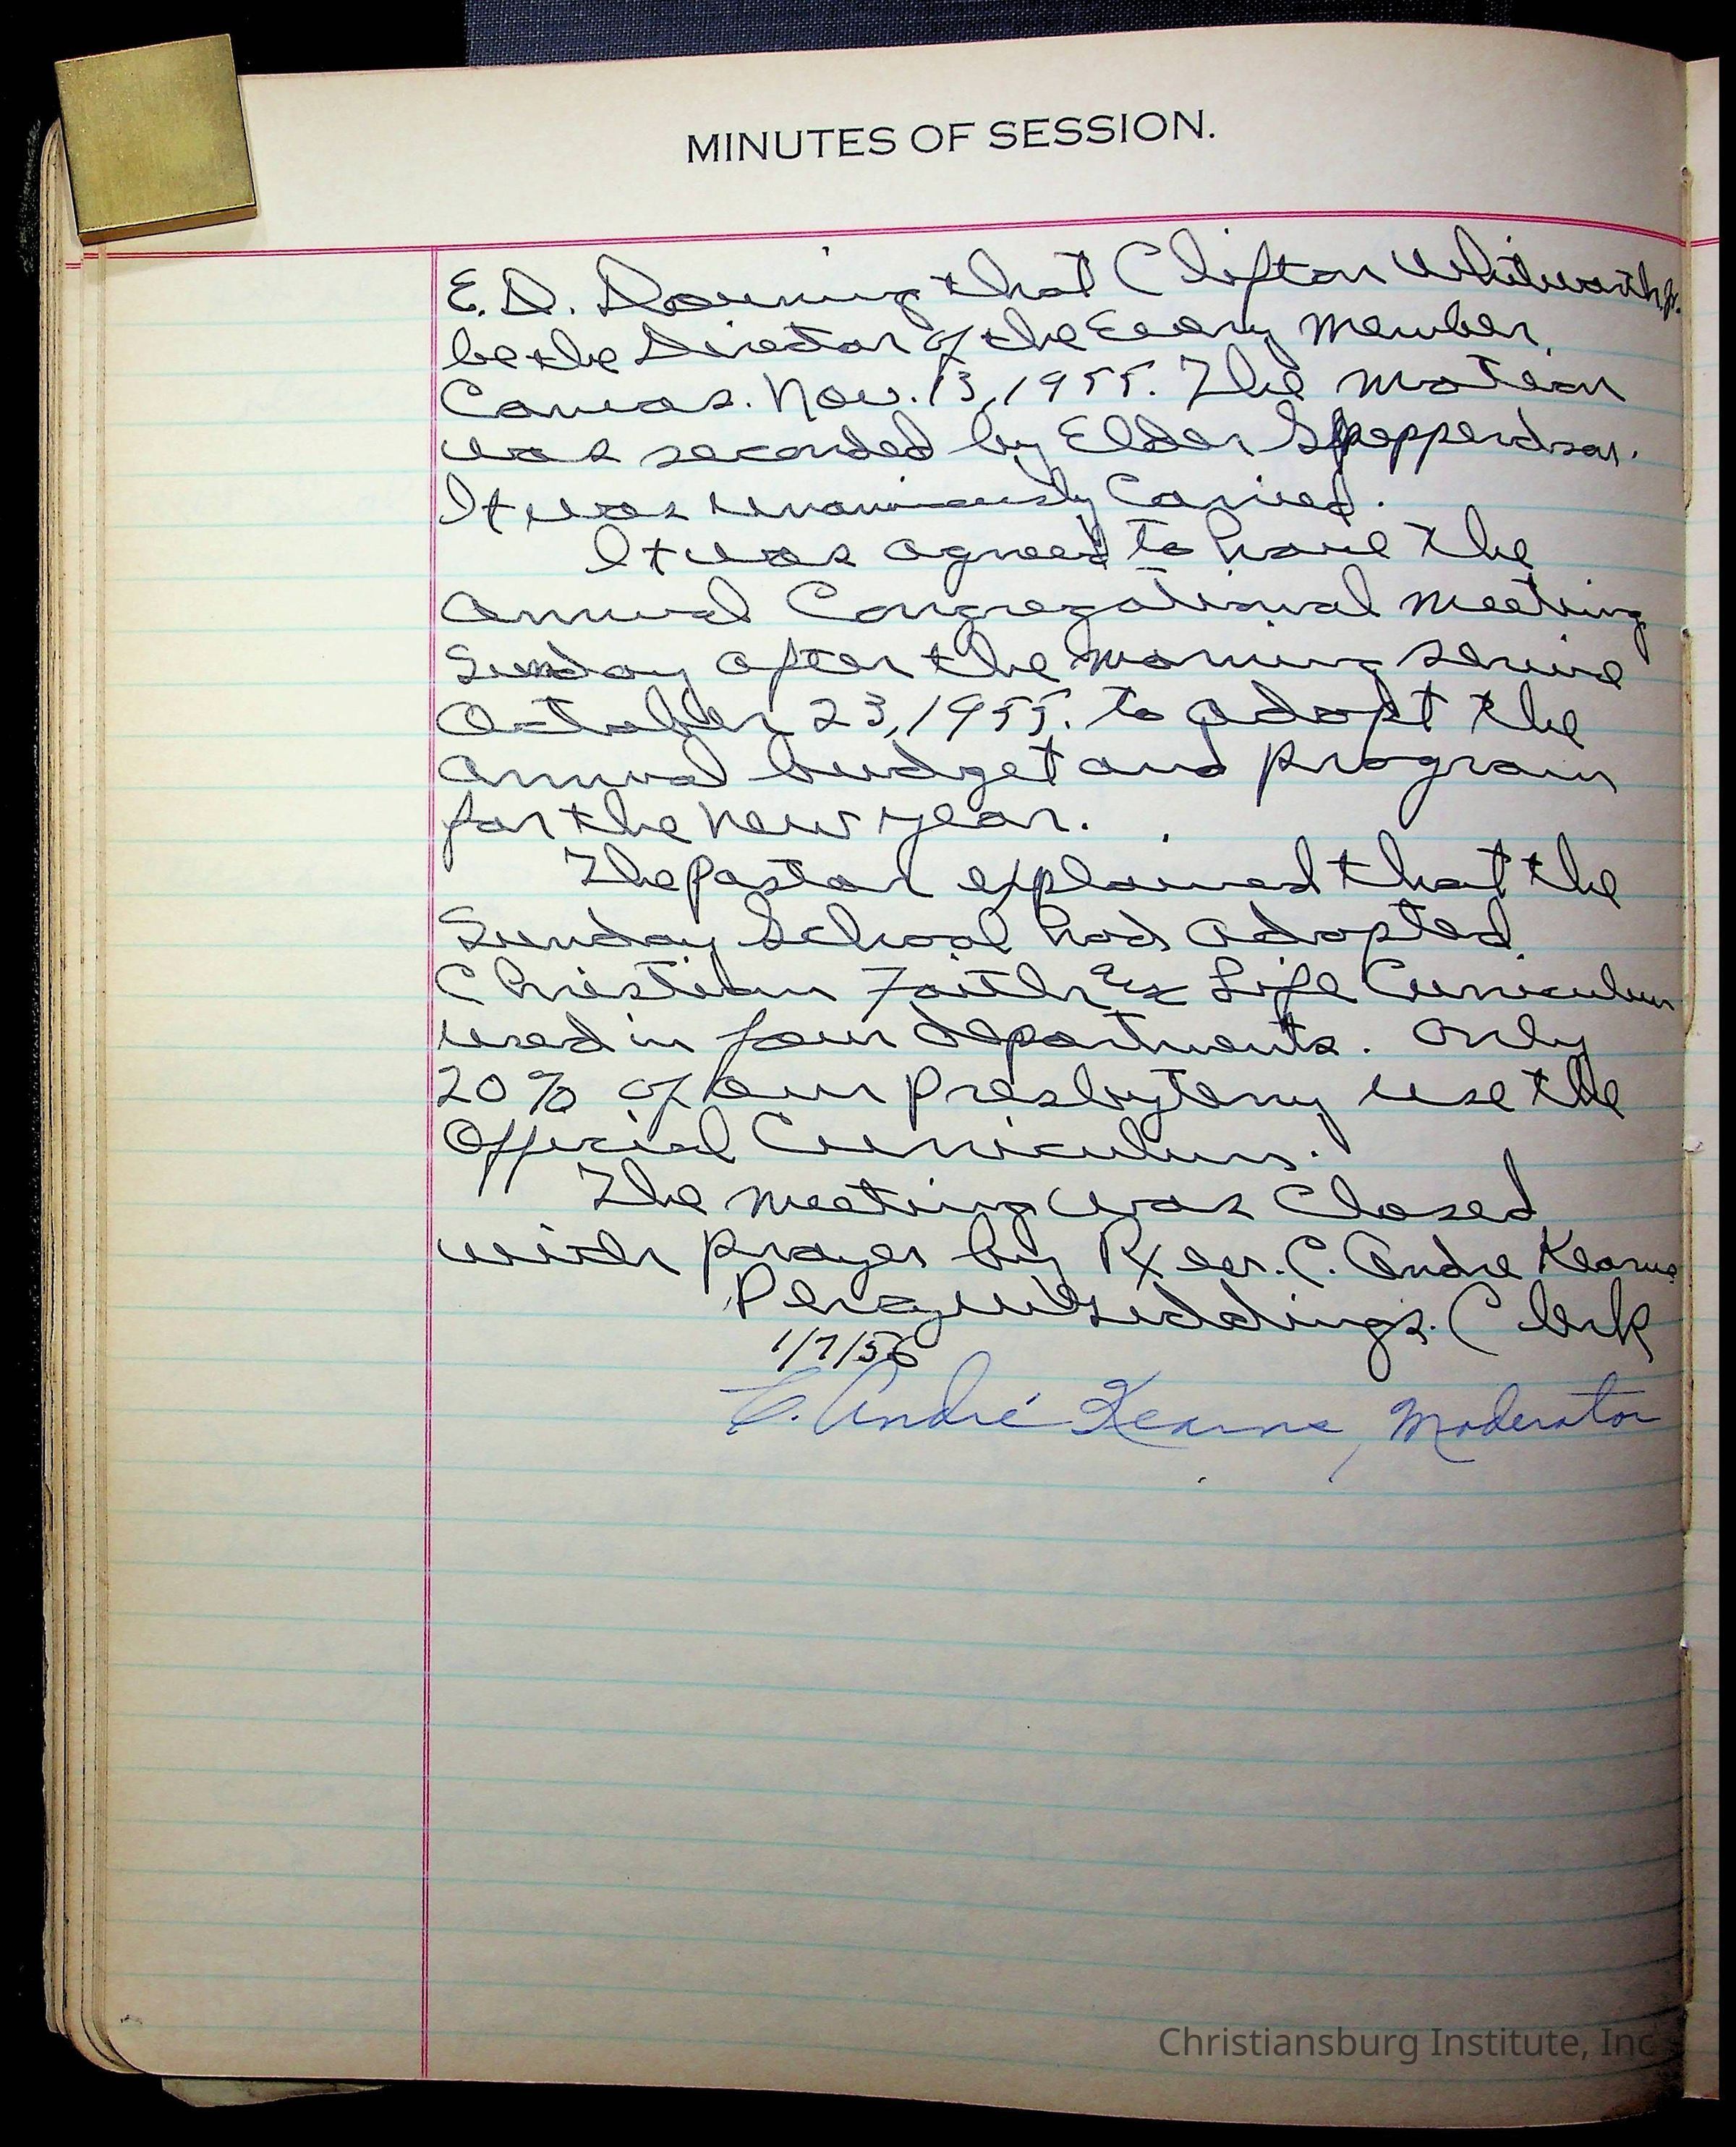 MINUTES OF SESSION.
E. D. Downing that Clifton Whitworth, Jr.
be the Director of the Every Member
Canvas. Nov. 13, 1955. The motion
was seconded by Elder Shepperdson.
It was unanimously Carried.
It was agreed to have the
annual Congregational meeting
Sunday after the morning service
October 23, 1955. to adopt the
annual budget and program
for the new year.
The Pastor explained that the
Sunday School had adopted
Christian Faith & Life Curriculum
used in four departments. Only
20% of our Presbytery use the
Official Curriculum.
The meeting was closed
with prayer by Rev. C. Andre Kearns
Giddings. Clerk
1/7/56
C. André Kearns, Moderator
Christiansburg Institute, Inc